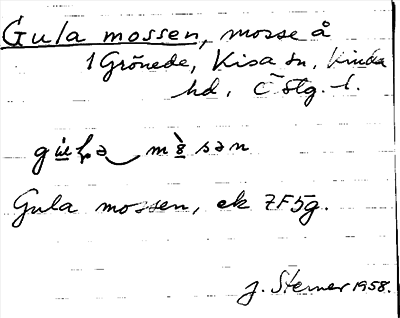 Gula mossen, mosse å
1 Grönede, Kisa sn, Kinda
hd, Östg. l.
Gula mossen, ek 7F5g.
J. Sterner 1958.